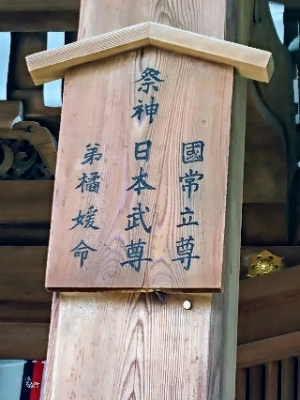 國常立尊
祭神 日本武尊
弟橘媛命